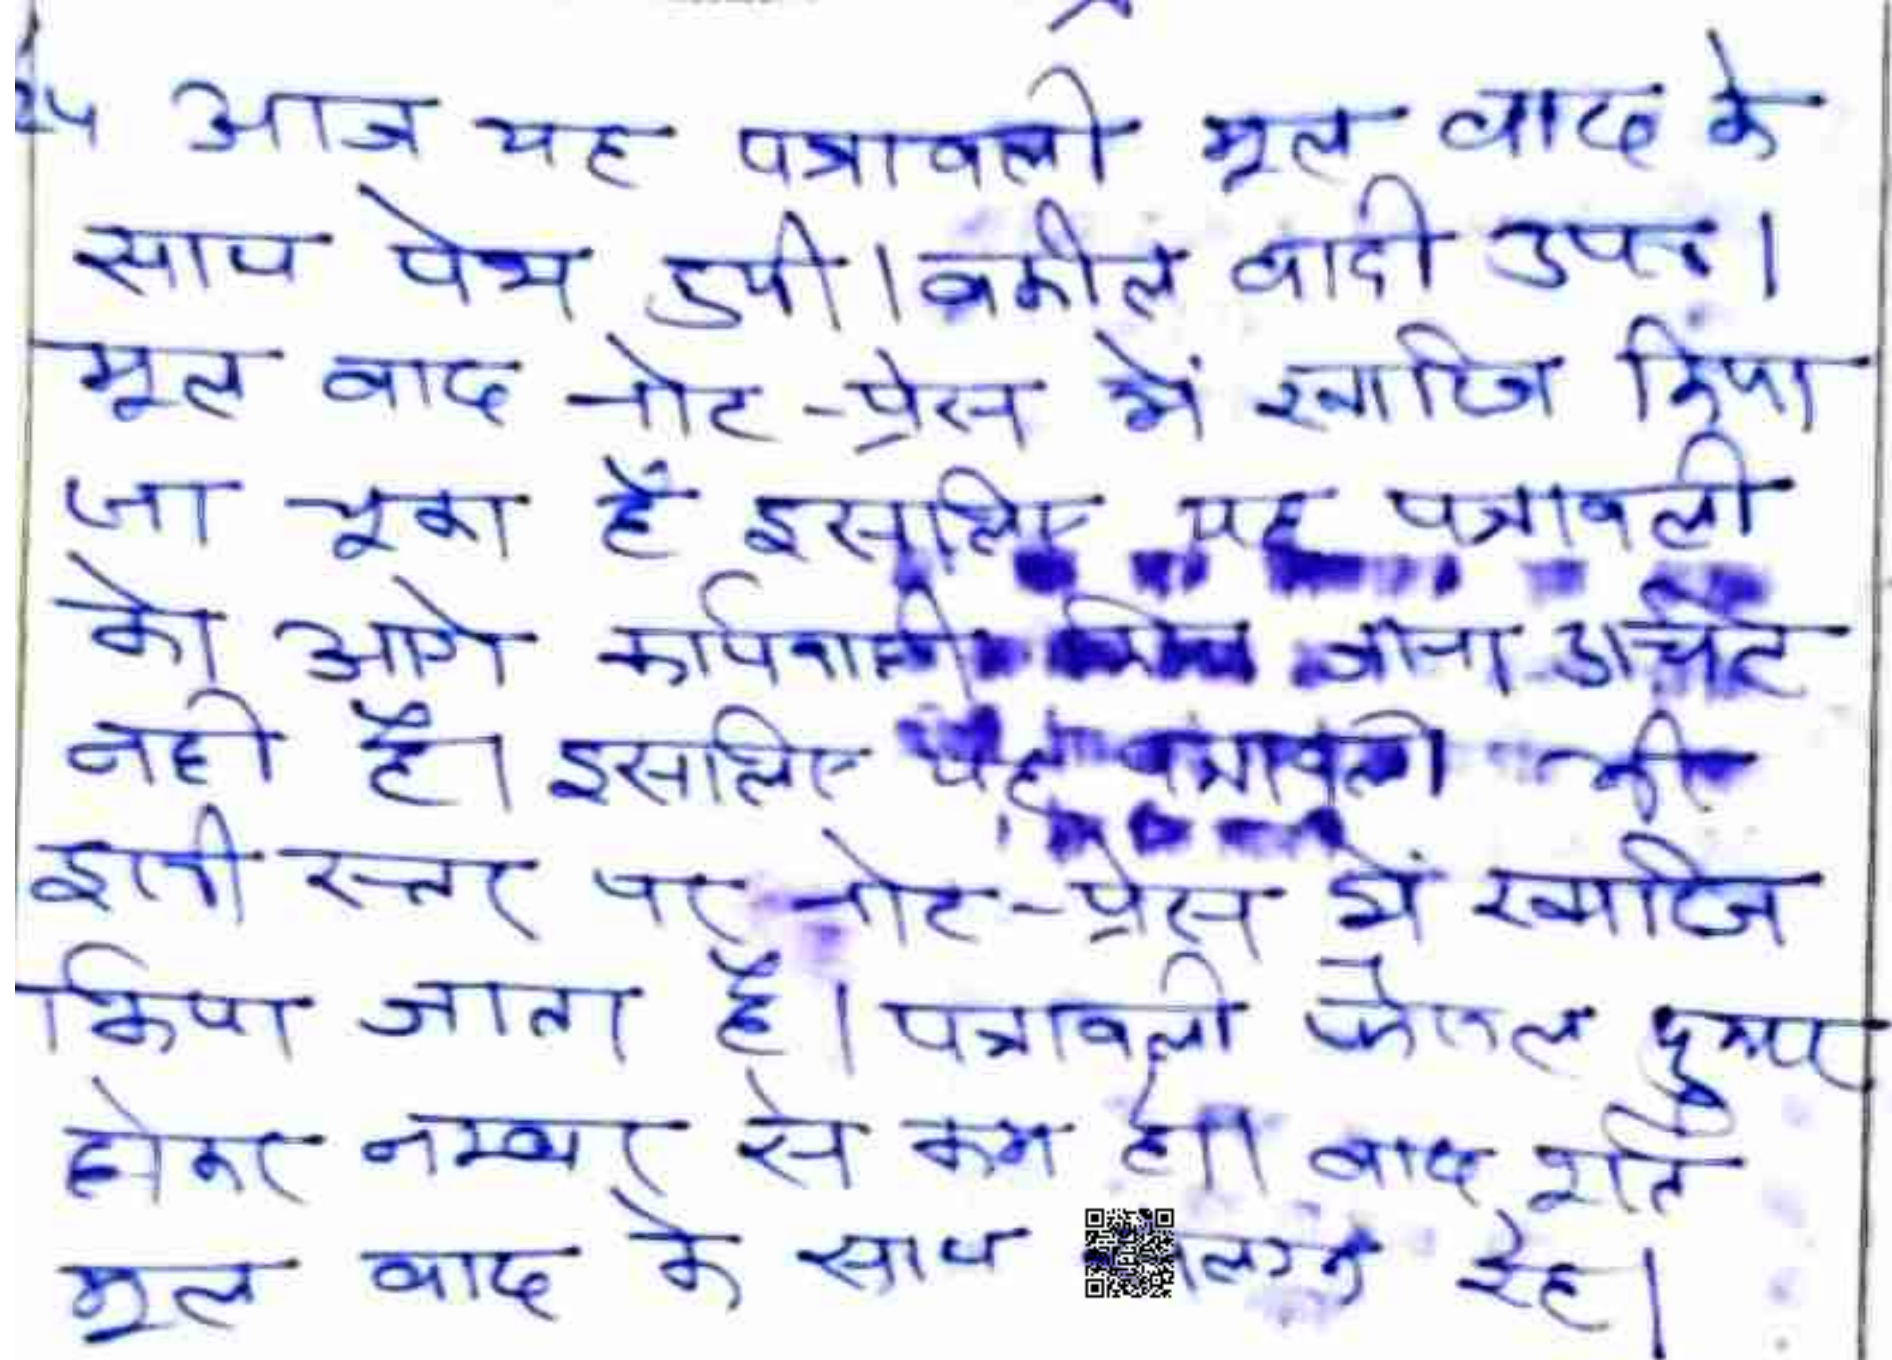 24 आज यह पत्रावली मूल वाद के
साथ पेश हुयी। वकील वादी उपत।
मूल वाद नोट-प्रेस में खारिज किया
जा चूका है इसलिए यह पत्रावली
को आगे कार्यवाही जाना उचित
नही है। इसलिए यह पत्रावली को
इसी स्तर पर नोट-प्रेस में खारिज
किया जाता है। पत्रावली फैसल शुमार
होकर नम्बर से कम हो। बाद पूर्ति
मूल वाद के साथ रहे।